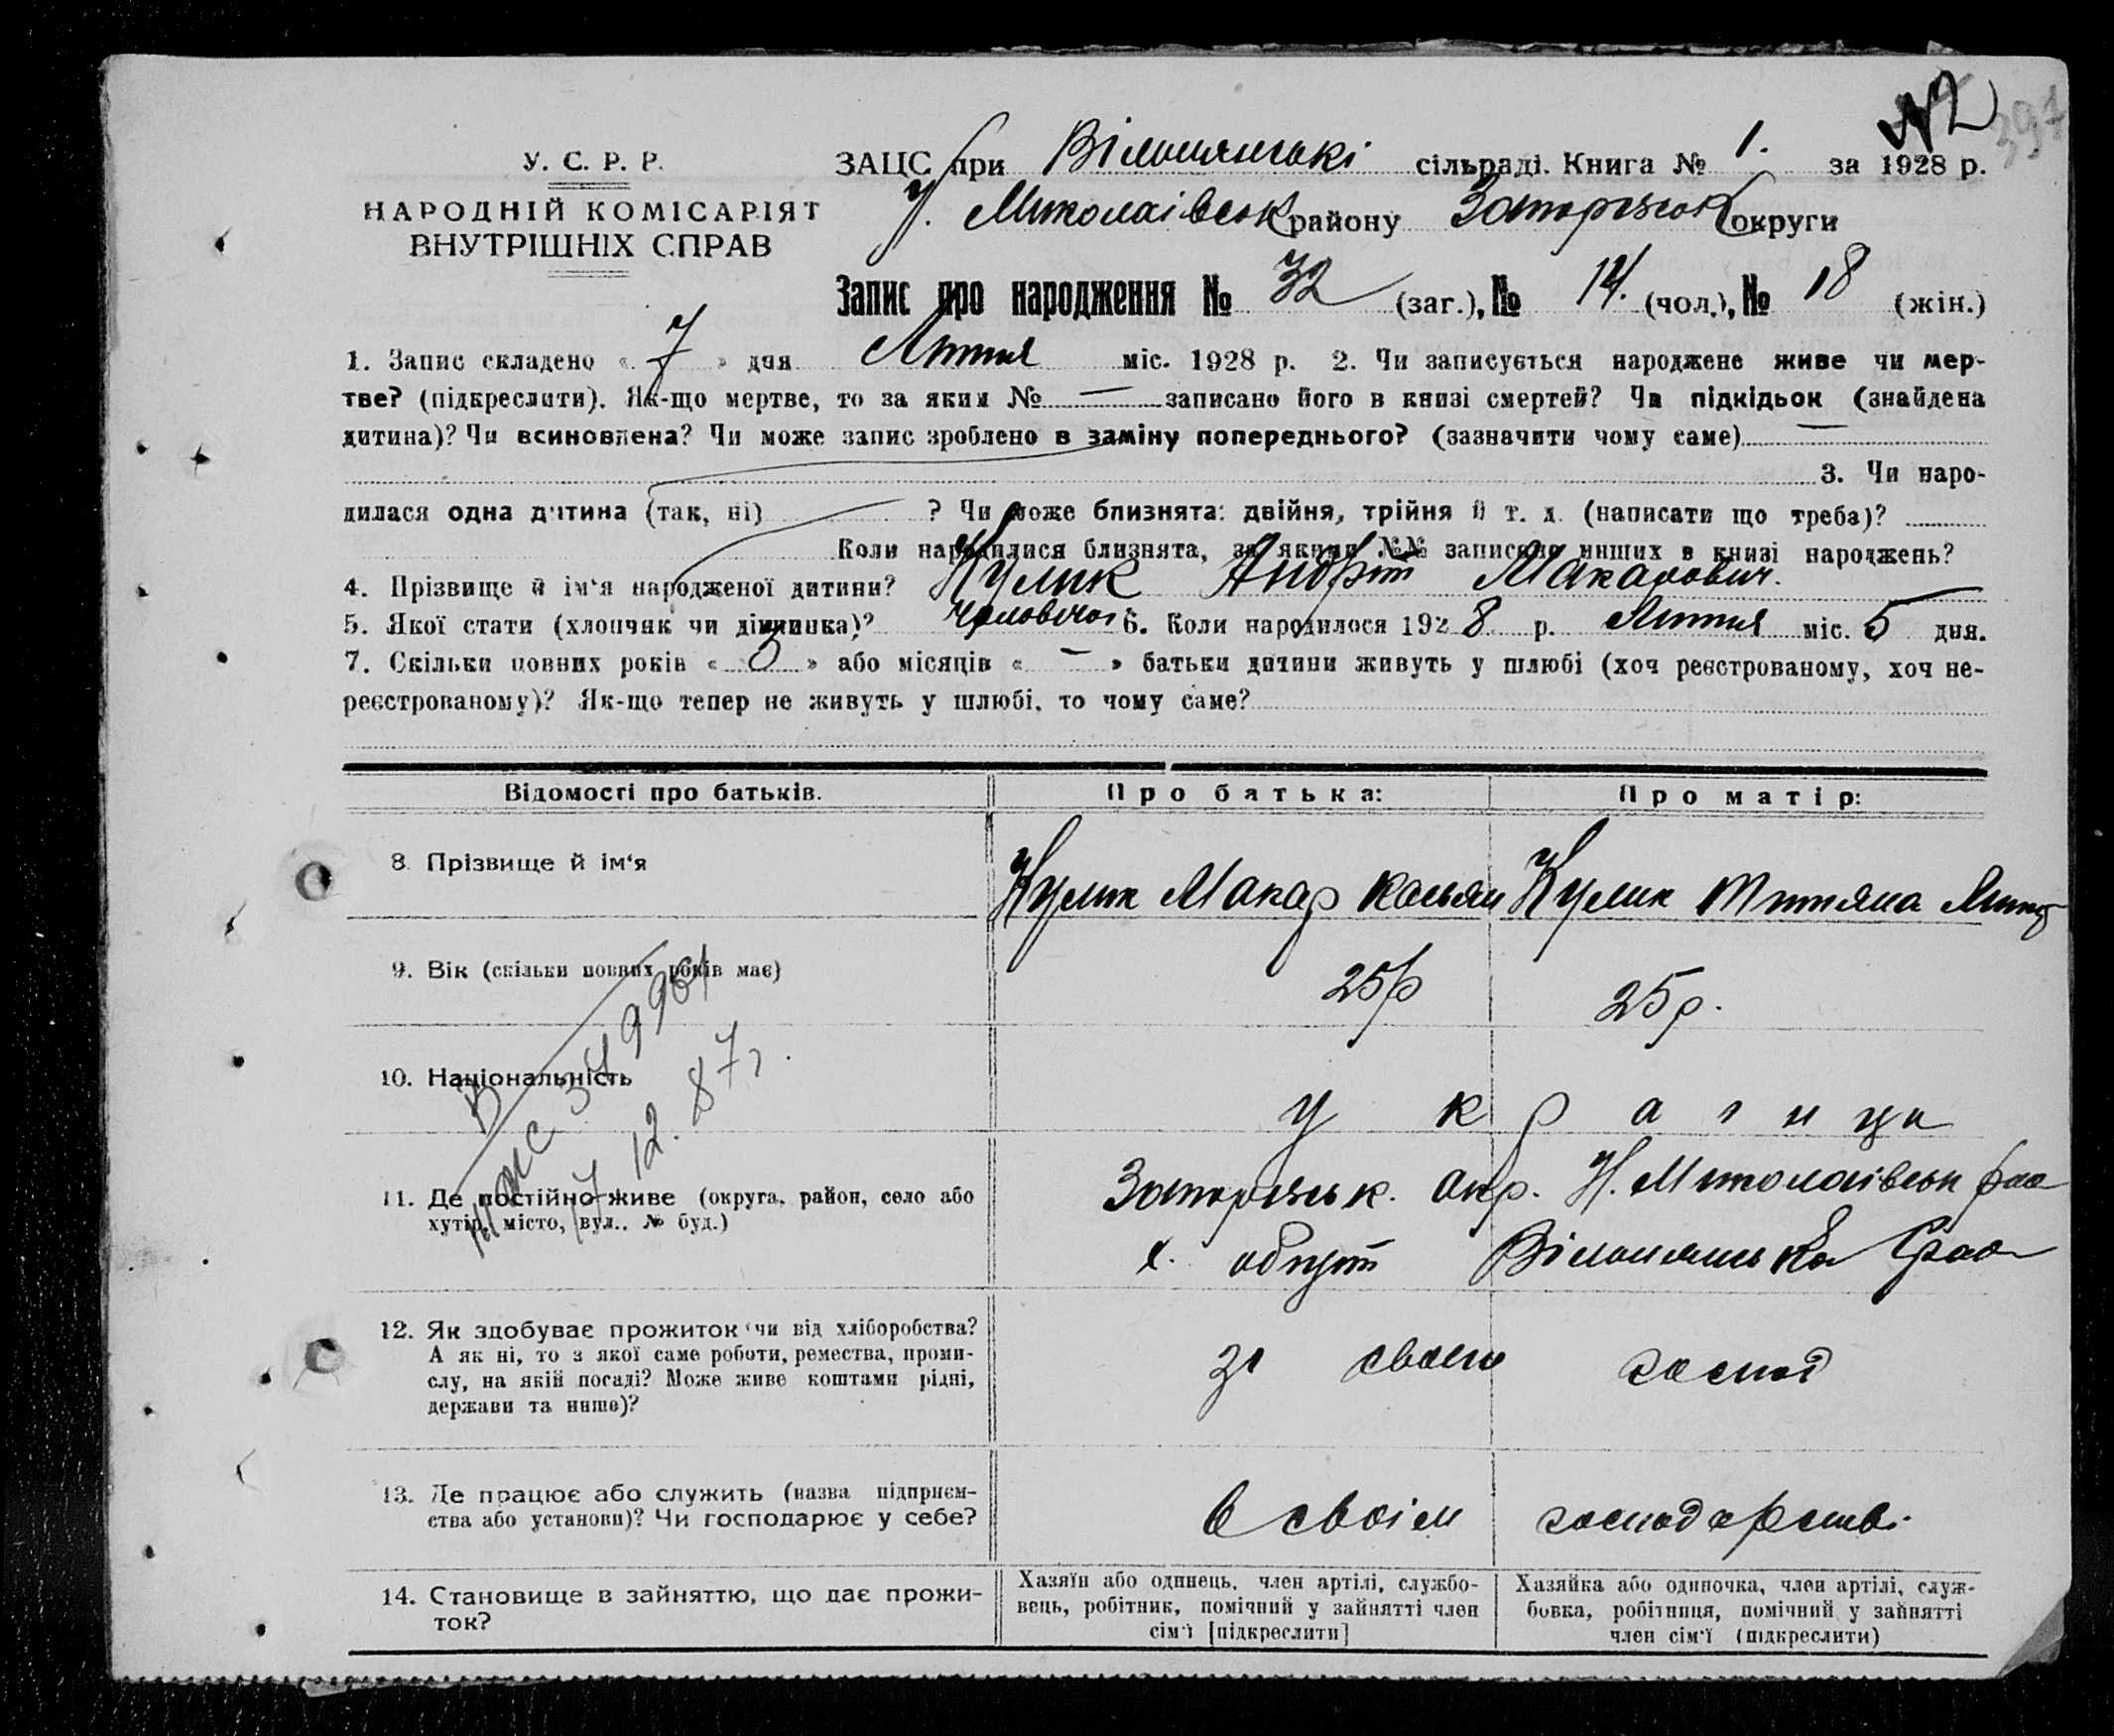 №2
397
У. С. Р. Р.
НАРОДНІЙ КОМІСАРІЯТ
ВНУТРІШНІХ СПРАВ
ЗАЦС при сільраді. Книга № 1. за 1928 р.
Миколаівськ району Запоріжськ округи
Запис про народження № 32 (заг.), № 14. (чол.), № 18 (жін.)
1. Запис складено « 7 » дня Липня міс. 1928 р. 2. Чи записується народжене живе чи мер-
тве? (підкреслити). Як-що мертве, то за яким № — записано його в книзі смертей? Чи підкідьок (знайдена
дитина)? Чи всиновлена? Чи може запис зроблено в заміну попереднього? (зазначити чому саме) —
3. Чи наро-
дилася одна дитина (так, ні) ? Чи може близнята: двійня, трійня й т. д. (написати що треба)?
Коли народилися близнята, за якими №№ записано инших в книзі народжень?
4. Прізвище й ім‘я народженої дитини? Кулик Андрій Макарович.
5. Якої стати (хлопчик чи дівчинка)? 6. Коли народилося 1928 р. Липня міс. 5 дня.
7. Скільки повних років « 5 » або місяців « — » батьки дитини живуть у шлюбі (хоч реєстрованому, хоч не-
реєстрованому)? Як-що тепер не живуть у шлюбі, то чому саме?
Відомості про батьків. Про батька: Про матір:
8. Прізвище й ім‘я Кулик Макар Кулик Титяна
9. Вік (скільки повних років має) 25р 25р.
10. Національність украінци
11. Де постійно живе (округа, район, село або
хутір, місто, вул., № буд.)
Запоріжськ. окр. Н. Миколаівськ рао
х.
12. Як здобуває прожиток чи від хліборобства?
А як ні, то з якої саме роботи, ремества, проми-
слу, на якій посаді? Може живе коштами рідні,
держави та инше)?
зі свого господ
13. Де працює або служить (назва підприєм-
ства або установи)? Чи господарює у себе?
в своім господарстві.
14. Становище в зайняттю, що дає прожи-
ток?
Хазяїн або одинець, член артілі, службо-
вець, робітник, помічний у зайнятті член
сім‘ї [підкреслити]
Хазяйка або одиночка, член артілі, служ-
бовка, робітниця, помічний у зайнятті
член сім‘ї (підкреслити)
17 12. 87г.